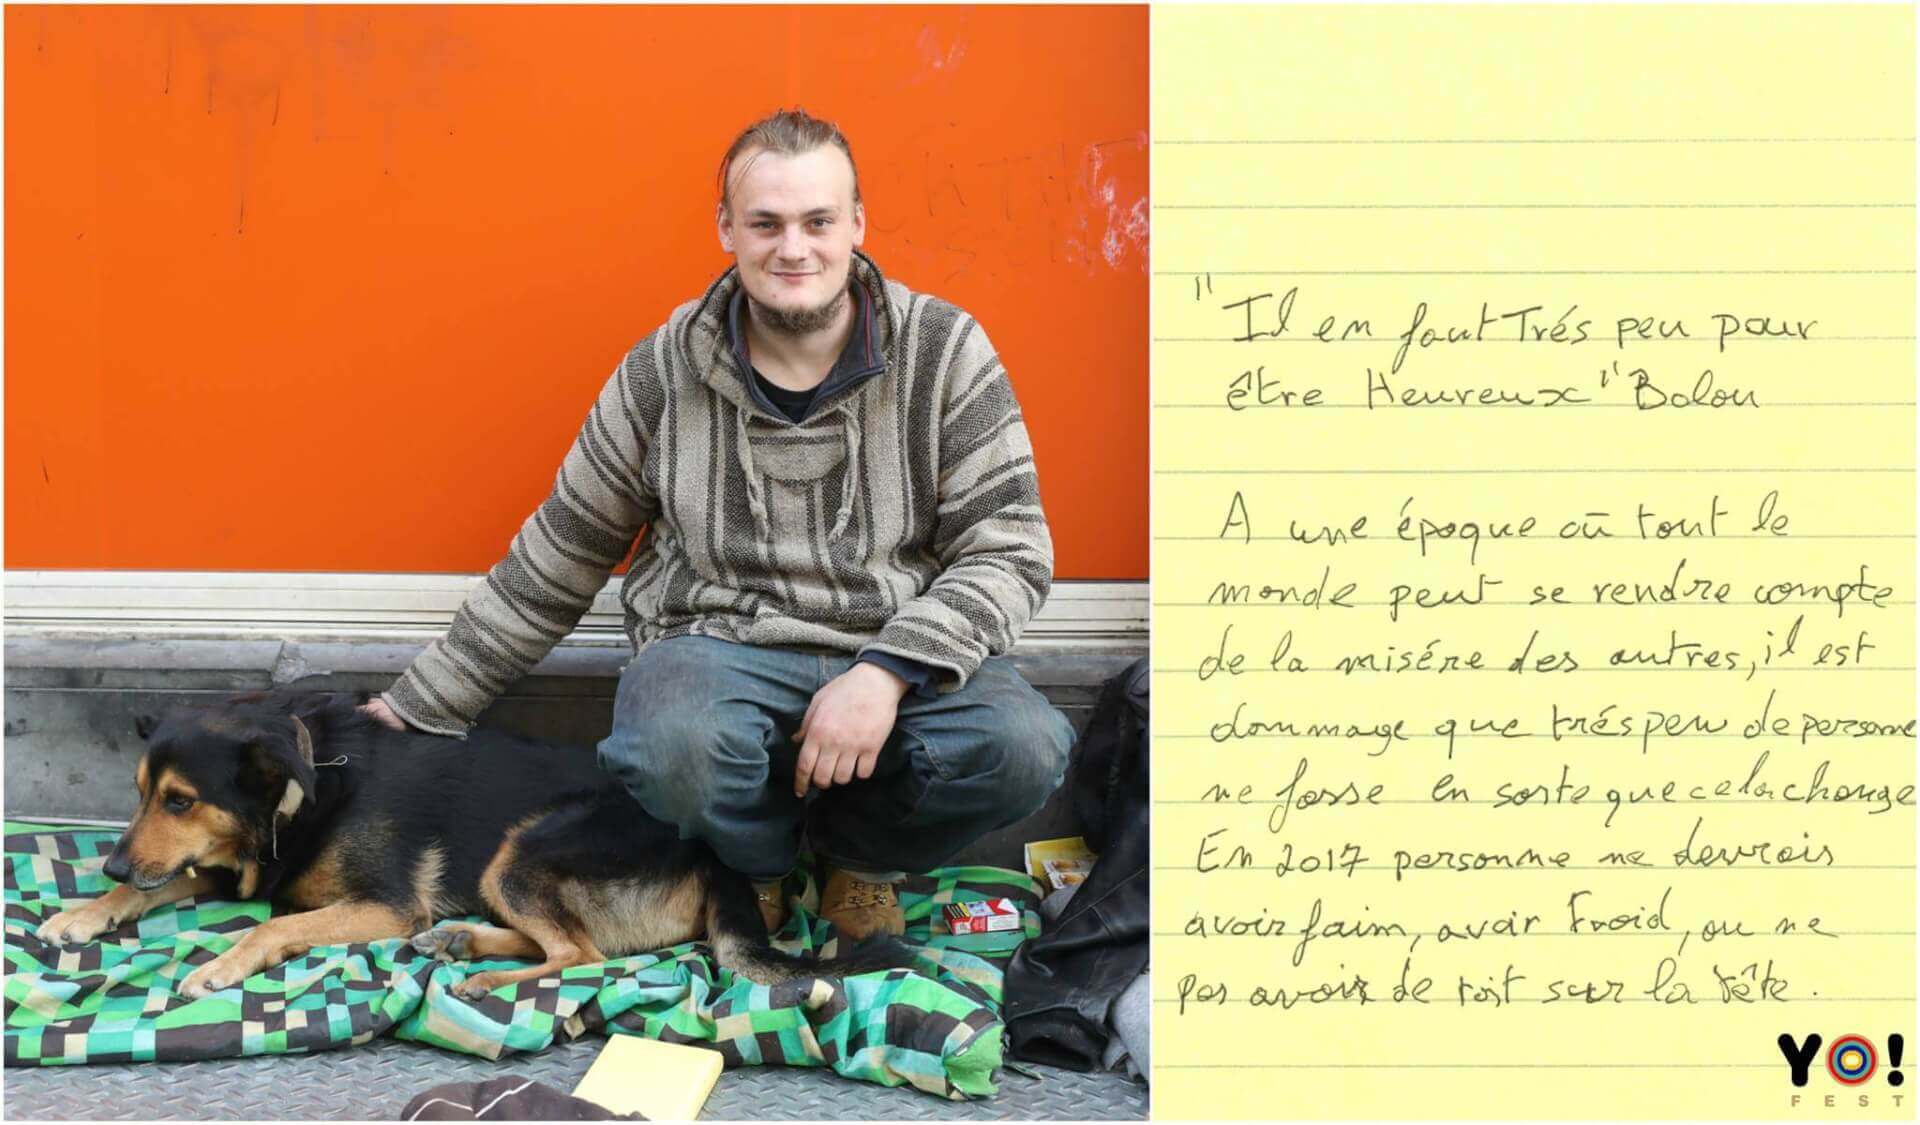 "Il en faut Trés peu pour
être Heureux" Balou
A une époque où tout le
monde peut se rendre compte
de la misére des autres, il est
dommage que trés peu de personne
ne fasse en sorte que cela change
En 2017 personne ne devrais
avoir faim, avoir Froid, ou ne
pas avoir de toit sur la tête.
YO!
FEST